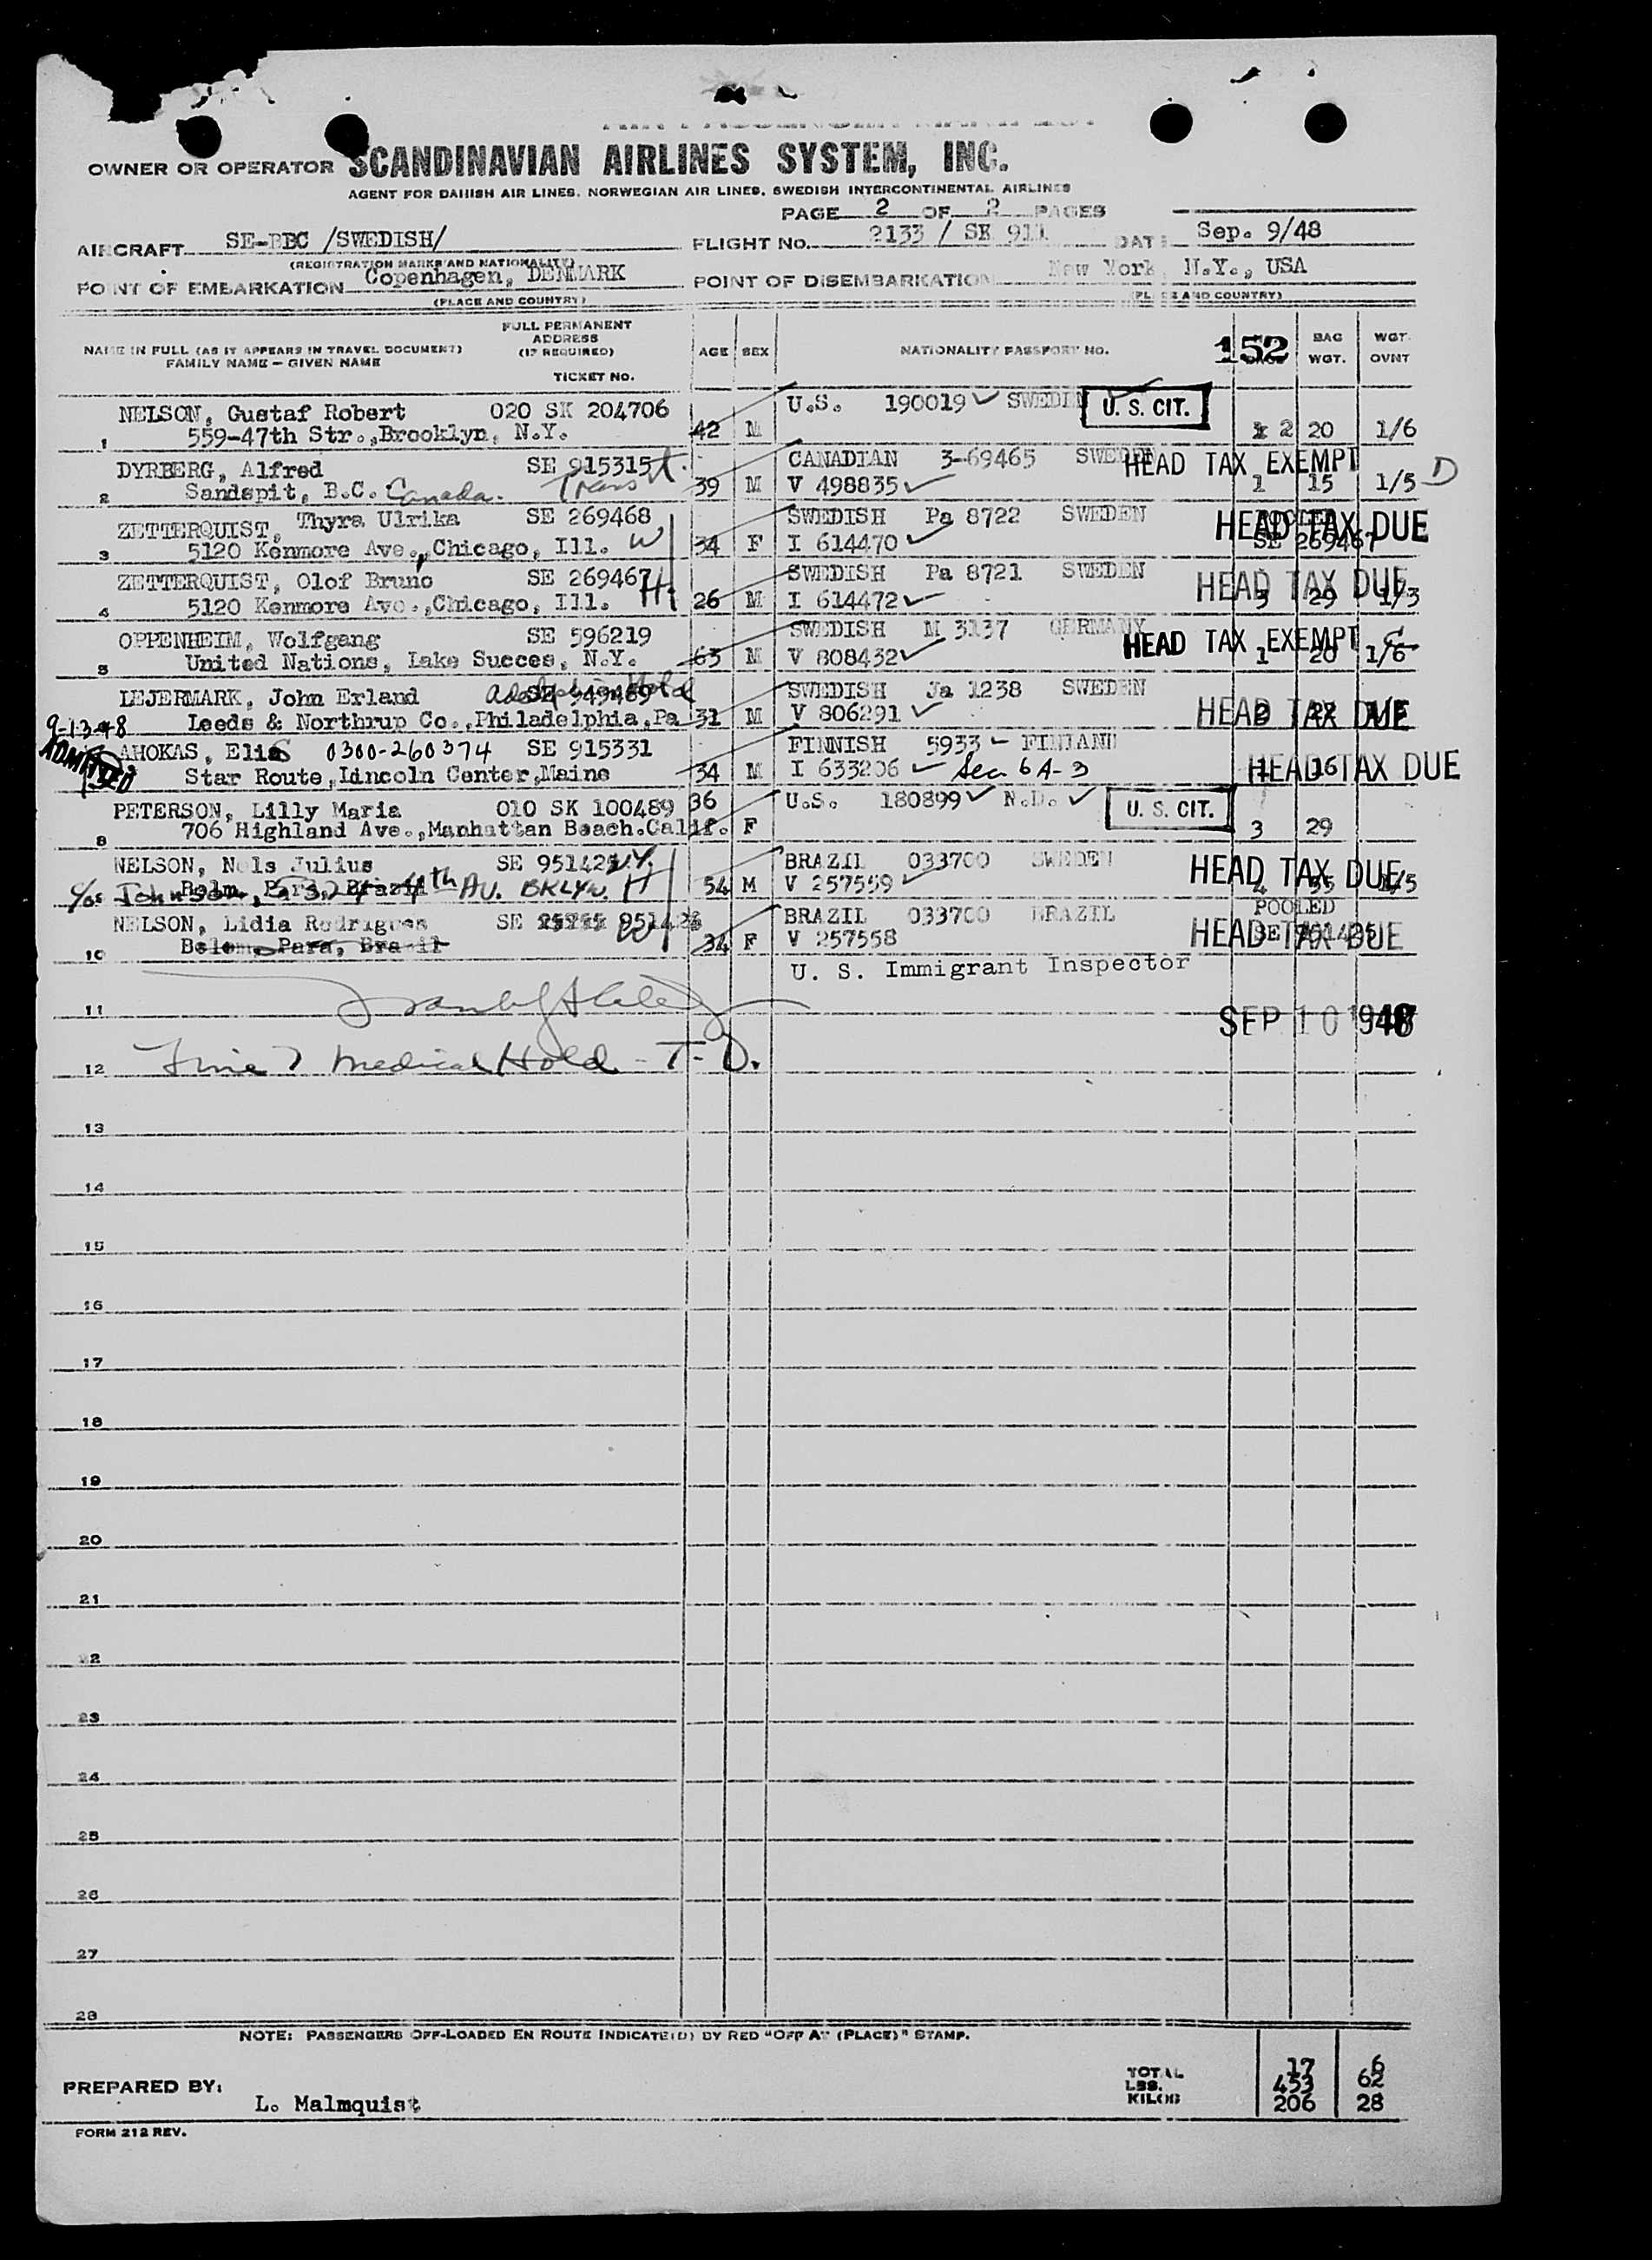 AIR PASSENGER MANIFEST
OWNER OR OPERATOR SCANDINAVIAN AIRLINES SYSTEM, INC.
AGENT FOR DANISH AIR LINES. NORWEGIAN AIR LINES. SWEDISH INTERCONTINENTAL AIRLINES
PAGE 2 OF 2 PAGES
AIRCRAFT SE-BBC /SWEDISH/ FLIGHT No. 2133 / SK 911 DATE Sep. 9/48
(REGISTRATION MARKS AND NATIONALITY)
POINT OF EMBARKATION Copenhagen, DENMARK POINT OF DISEMBARKATION New York, N.Y., USA
(PLACE AND COUNTRY) (PLACE AND COUNTRY)
NAME IN FULL (AS IT APPEARS IN TRAVEL DOCUMENT) FAMILY NAME – GIVEN NAME
FULL PERMANENT ADDRESS (IF REQUIRED) TICKET No.
AGE SEX NATIONALITY PASSPORT NO. 152 BAG WGT. WGT. OVNT
NELSON, Gustaf Robert 020 SK 204706 U.S. 190019 SWEDEN U. S. CIT.
1 559-47th Str.,Brooklyn, N.Y. 42 M 2 20 1/6
DYRBERG, Alfred SE 915315 Transit. CANADIAN 3-69465 SWEDEN HEAD TAX EXEMPT
2 Sandspit, B.C. Canada. 39 M V 498835 1 15 1/5 D
ZETTERQUIST, Thyra Ulrika SE 269468 SWEDISH Pa 8722 SWEDEN POOLED HEAD TAX DUE
3 5120 Kenmore Ave., Chicago, Ill. W 34 F I 614470 SE 269467
ZETTERQUIST, Olof Bruno SE 269467 H SWEDISH Pa 8721 SWEDEN HEAD TAX DUE
4 5120 Kenmore Ave.,Chicago, Ill. 26 M I 614472 3 29 1/3
OPPENHEIM, Wolfgang SE 596219 SWEDISH M 3137 GERMANY HEAD TAX EXEMPT
5 United Nations, Lake Succes, N.Y. 63 M V 808432 1 20 1/6
LEJERMARK, John Erland SE 949489 SWEDISH Ja 1238 SWEDEN
Leeds & Northrup Co.,Philadelphia,Pa 31 M V 806291 HEAD TAX DUE
9-13-48 ADMITTED
AHOKAS, Elias 0300-260374 SE 915331 FINNISH 5933 FINLAND
Star Route,Lincoln Center,Maine 34 M I 633206 Sec 6 A-3 1 16 HEAD TAX DUE
PETERSON, Lilly Maria 010 SK 100489 36 U.S. 180899 N.D. U. S. CIT.
8 706 Highland Ave.,Manhattan Beach.Calif. F 3 29
NELSON, Nels Julius SE 951425 BRAZIL 033700 SWEDEN HEAD TAX DUE
c/o Johnson, 4th AV. BKLYN. H 54 M V 257559 4 55 1/5
NELSON, Lidia Rodrigues SE W BRAZIL 033700 BRAZIL POOLED
10 Belem, Para, Brazil 34 F V 257558 HEAD TAX DUE
U. S. Immigrant Inspector
11 SEP 10 1948
12 Line 7 Medical Hold - T-D.
13
14
15
16
17
18
19
20
21
22
23
24
25
26
27
28
NOTE: PASSENGERS OFF-LOADED EN ROUTE INDICATE(D) BY RED "OFF AT (PLACE)" STAMP.
TOTAL 17 6
PREPARED BY: LBS. 453 62
L. Malmquist KILOS 206 28
FORM 212 REV.